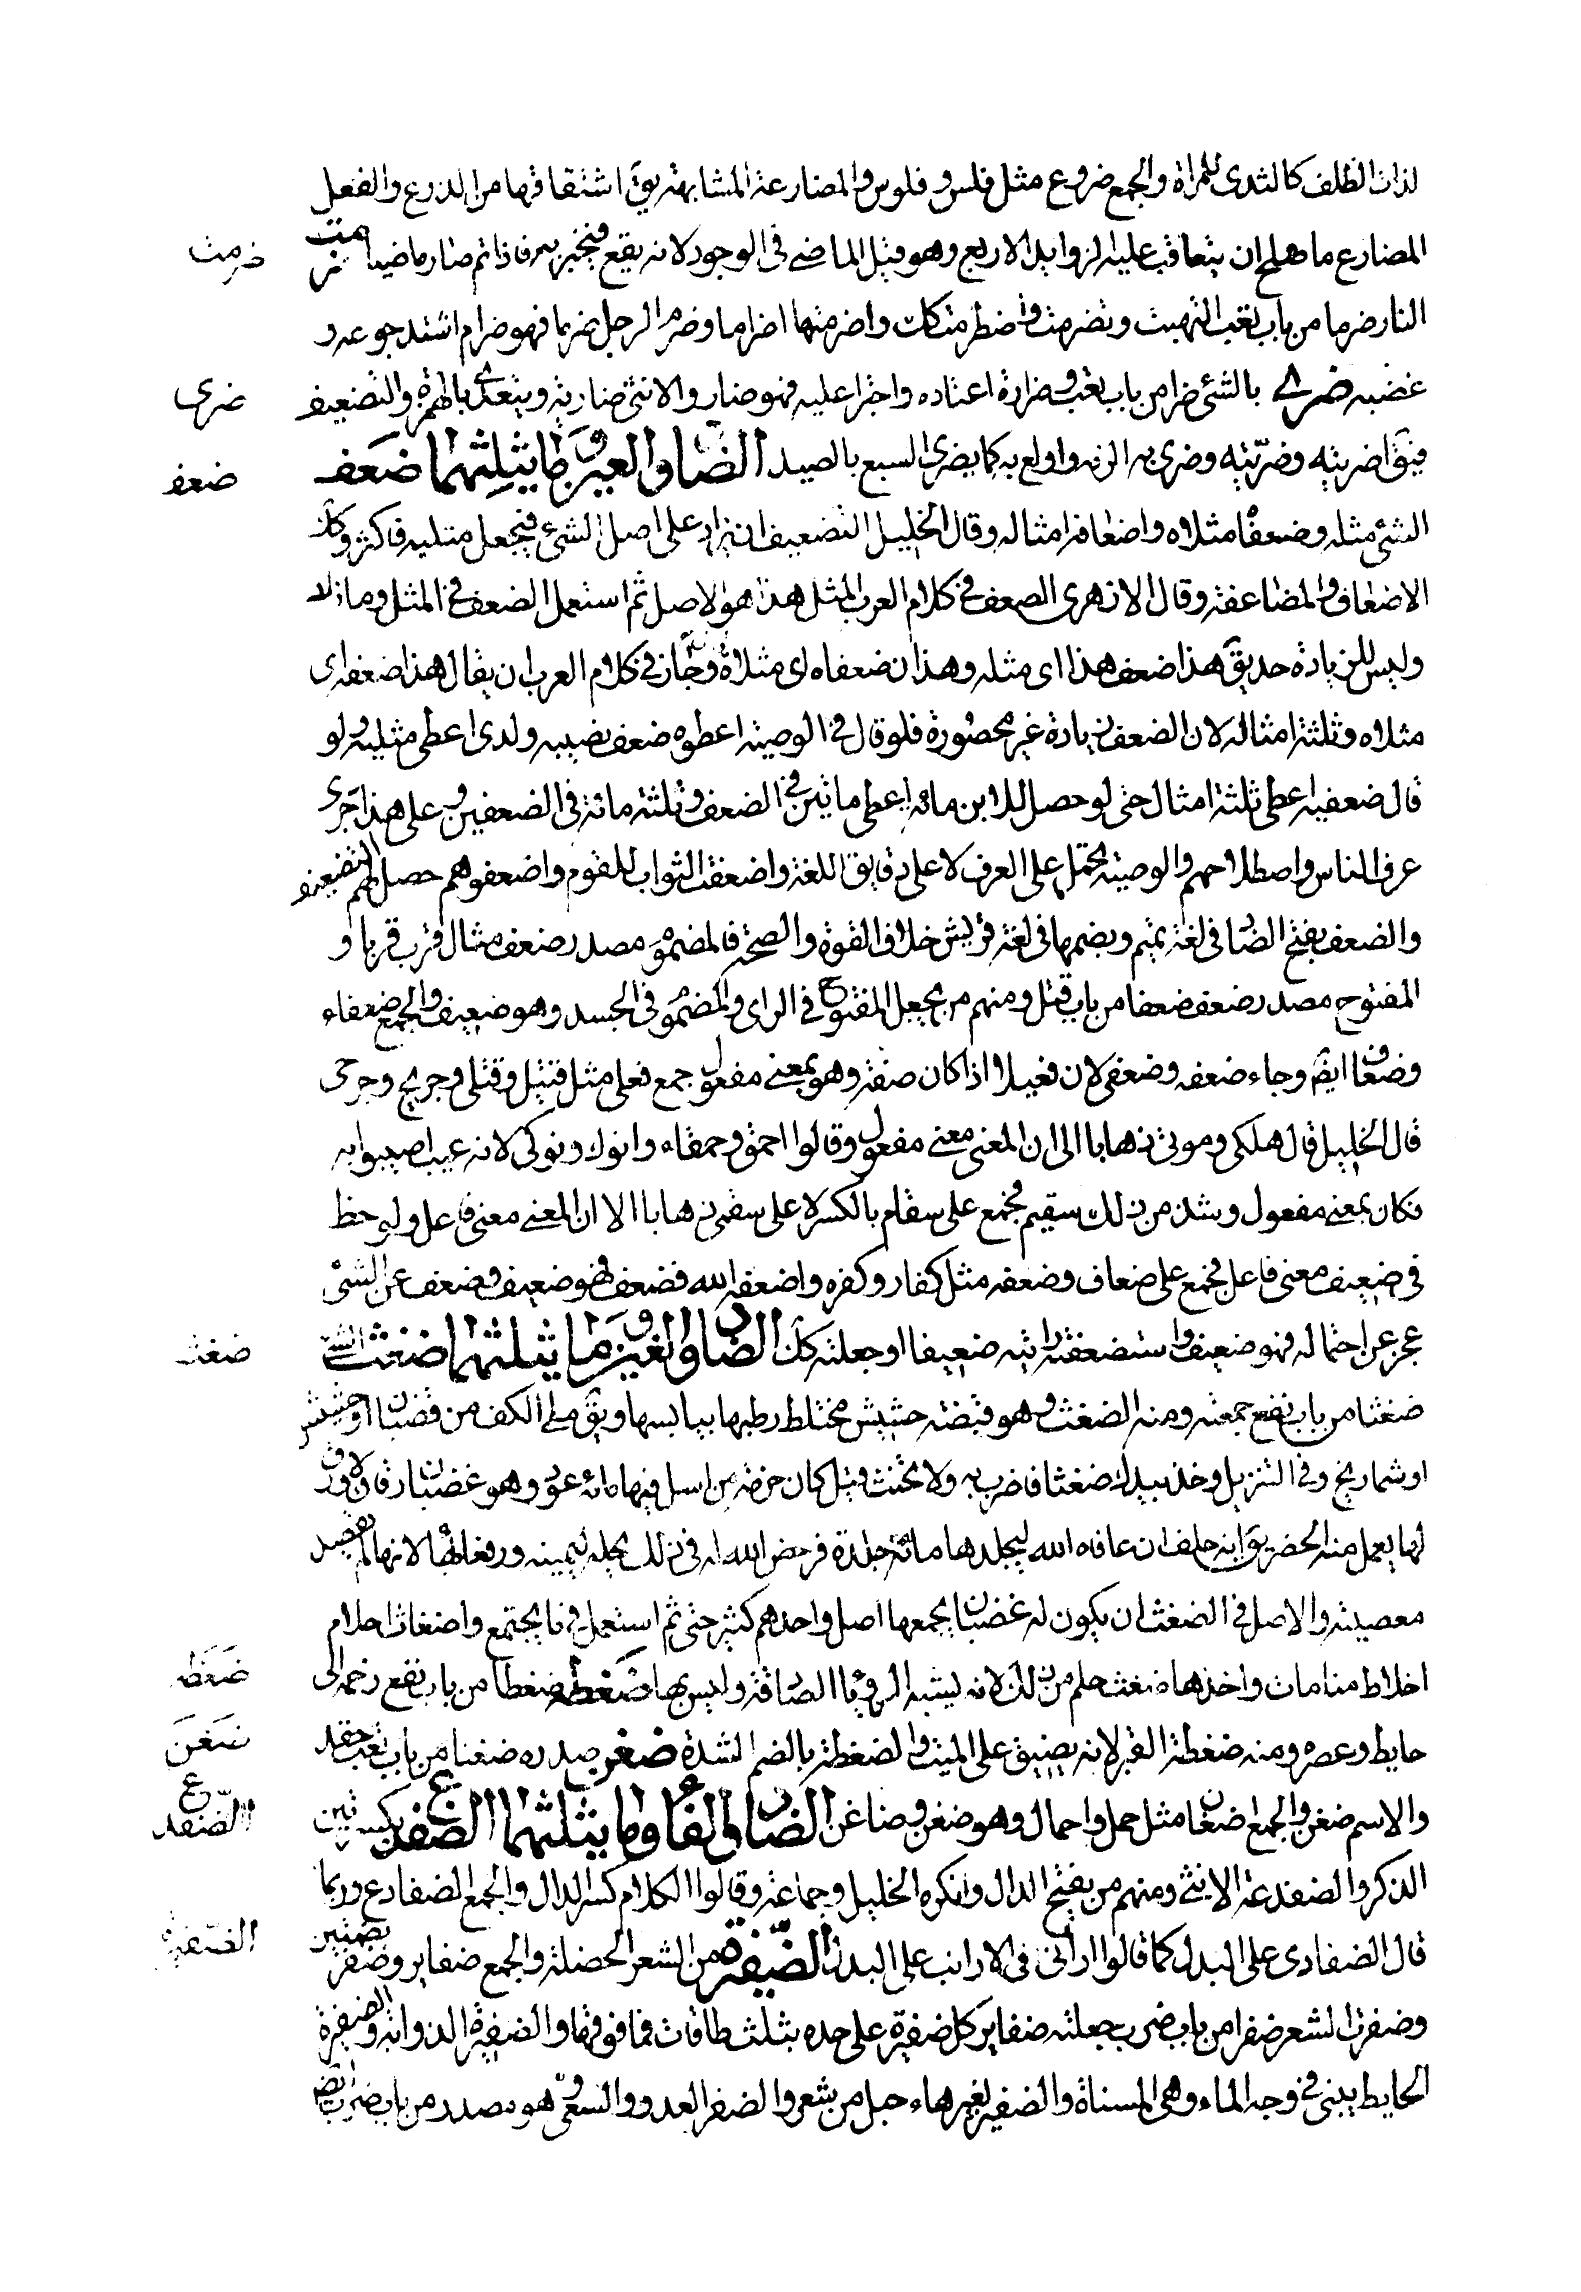 لذات الظلف كالثدى للمراة والجمع ضروع مثل فلس و فلوس والمضارعة المشابهة يق اشتقاقها من الدرع والفعل
المضارع ما صلح ان يتعاقب عليه الزوايد الاربع وهو قبل الماضى فى الوجود لانه يقع فيخبر به فاذا تم صار ماضيا ضرمت
ضرمت
النار ضرما من باب تعب التهبت وتضرمت واضطرمت كك واضرمتها اضراما وضرم الرجل ضرما فهو ضرم اشتد جوعه و
غضبه ضرى بالشئ ضرا من باب تعب وضراوة اعتاده واجترا عليه فهو ضار والانثى ضارية ويتعدى بالهمزة والتضعيف
ضرى
فيق اضريته وضرّيته وضرى به الزمه واولع به كما يضرى السبع بالصيد الضاد والعين وما يثلثهما ضعف
ضعف
الشئ مثله وضعفاه مثلاه واضعافه امثاله وقال الخليل التضعيف ان يزاد على اصل الشئ فيجعل مثليه فاكثر وكك
الاضعاف والمضاعفة وقال الازهرى الضعف فى كلام العرب المثل هذا هو الاصل ثم استعمل الضعف فى المثل وما زاد
وليس للزيادة حد يق هذا ضعف هذا اى مثله وهذان ضعفاه اى مثلاه وجاز فى كلام العرب ان يقال هذا ضعفه اى
مثلاه وثلثة امثاله لان الضعف زيادة غير محصورة فلو قال فى الوصية اعطوه ضعف نصيب ولدى اعطى مثليه ولو
قال ضعفيه اعطى ثلثة امثال حتى لو حصل للابن مائة اعطى مائتين فى الضعف وثلثة مائة فى الضعفين وعلى هذا جرى
عرف الناس واصطلاحهم والوصية تحمل على العرف لا على دقايق اللغة واضعفت الثواب للقوم واضعفوهم حصل لهم التضعيف
والضعف بفتح الضاد فى لغة تميم وبضمها فى لغة قريش خلاف القوة والصحة فالمضموم مصدر ضعف مثال قرب قربا و
المفتوح مصدر ضعف ضعفا من باب قتل ومنهم من يجعل المفتوح فى الراى والمضموم فى الجسد وهو ضعيف والجمع ضعفاء
وضعاف ايضا وجاء ضعفه وضعفى لان فعيلا اذا كان صفة وهو بمعنى مفعول جمع فعلى مثل قتيل وقتلى وجريح وجرحى
قال الخليل قال هلكى وموتى ذهابا الى ان المعنى معنى مفعول وقالوا احمق وحمقاء وانوك ونوكى لانه عيب اصيبوا به
فكان بمعنى مفعول وشذ من ذلك سقيم فجمع على سقام بالكسر لا على سقمى ذهابا الا ان المعنى معنى فاعل ولوحظ
فى ضعيف معنى فاعل فجمع على ضعاف وضعفه مثل كفار وكفره واضعفه الله فضعف فهو ضعيف وضعف عن الشئ
عجز عن احتماله فهو ضعيف واستضعفته رايته ضعيفا او جعلته كك الضاد والغين وما يثلثهما ضغثت الشئ
ضغث
ضغثا من باب نفع جمعته ومنه الضغث وهو قبضة حشيش مختلط رطبها بيابسها ويق ملء الكف من قضبان او حشيش
او شماريخ وفى التنزيل وخذ بيدك ضغثا فاضرب به ولا تحنث قيل كان حزمة من اسل فيها مائة عود وهو قضبان رقاق لا ورق
لها يعمل منه الحصر يق انه حلف ان عافاه الله ليجلدها مائة جلدة فرخص الله له فى ذلك تحلة ليمينه ورفقا بها لانها لم تقصد
معصية والاصل فى الضغث ان يكون له قضبان يجمعها اصل واحد ثم كثر حتى استعمل فيما يجتمع واضغاث احلام
اخلاط منامات واحدها ضغث حلم من ذلك لانه يشبه الرؤيا الصادقة وليس بها ضغطه ضغطا من باب نفع زحمه الى
ضغطه
حايط وعصره ومنه ضغطة القبر لانه يضيق على الميت والضغطة بالضم الشدة ضغن صدره ضغنا من باب تعب حقد
ضغن
والاسم ضغن والجمع اضغان مثل حمل واحمال وهو ضغن وضاغن الضاد والفاء وما يثلثهما الضفدع بكسرتين
الضفدع
الذكر والضفدعة الانثى ومنهم من يفتح الدال وانكره الخليل وجماعة وقالوا الكلام كسر الدال والجمع الضفادع وربما
قال الضفادى على البدل كما قالوا ارانى فى الارانب على البدل الضفيرة من الشعر الخصلة والجمع ضفاير وضفر بضمتين
الضفيرة
وضفرت الشعر ضفرا من باب ضرب جعلته ضفاير كل ضفيرة على حده بثلث طاقات فما فوقها والضفيرة الذوابة والضفيرة
الحايط يبنى فى وجه الماء وهى المسناة والضفير بغير هاء حبل من شعر والضفر العدو والسعى وهو مصدر من باب ضرب ايضا